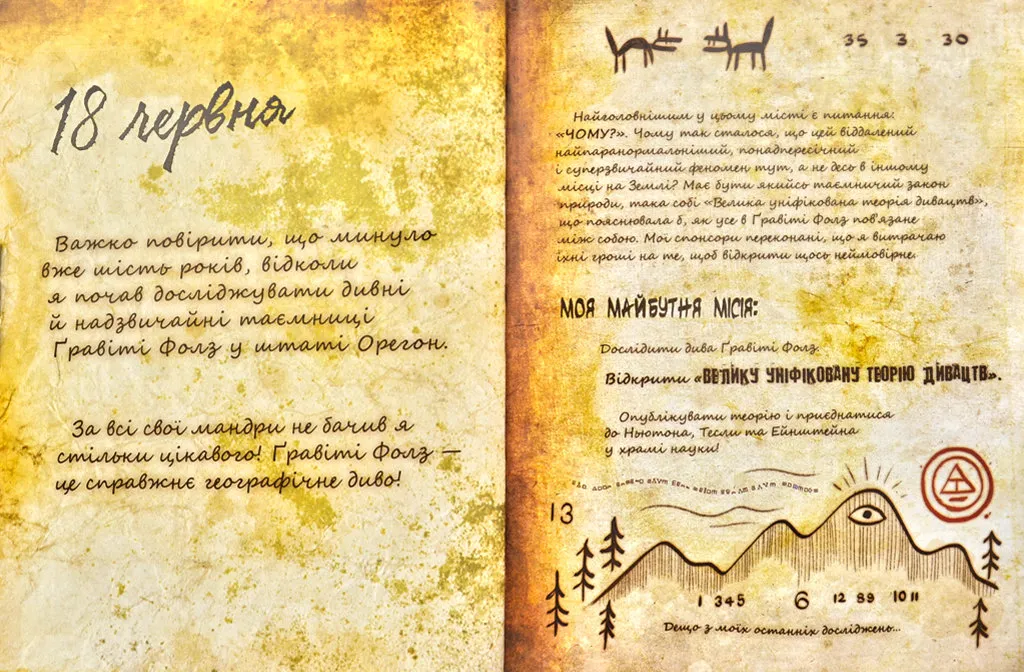 18 червня
Важко повірити, що минуло
вже шість років, відколи
я почав досліджувати дивні
й надзвичайні таємниці
Ґравіті Фолз у штаті Орегон.
За всі свої мандри не бачив я
стільки цікавого! Ґравіті Фолз —
це справжнє географічне диво!
35 3 30
Найголовнішим у цьому місті є питання:
«ЧОМУ?». Чому так сталося, що цей віддалений
найпаранормальніший, понадпересічний
і суперзвичайний феномен тут, а не десь в іншому
місці на Землі? Має бути якийсь таємничий закон
природи, така собі «Велика уніфікована теорія дивацтв»,
що пояснювала б, як усе в Ґравіті Фолз пов'язане
між собою. Мої спонсори переконані, що я витрачаю
їхні гроші на те, щоб відкрити щось неймовірне.
МОЯ МАЙБУТНЯ МІСІЯ:
Дослідити дива Ґравіті Фолз.
Відкрити «ВЕЛИКУ УНІФІКОВАНУ ТЕОРІЮ ДИВАЦТВ».
Опублікувати теорію і приєднатися
до Ньютона, Тесли та Ейнштейна
у храмі науки!
13
1 345 6 12 89 10 11
Дещо з моїх останніх досліджень...